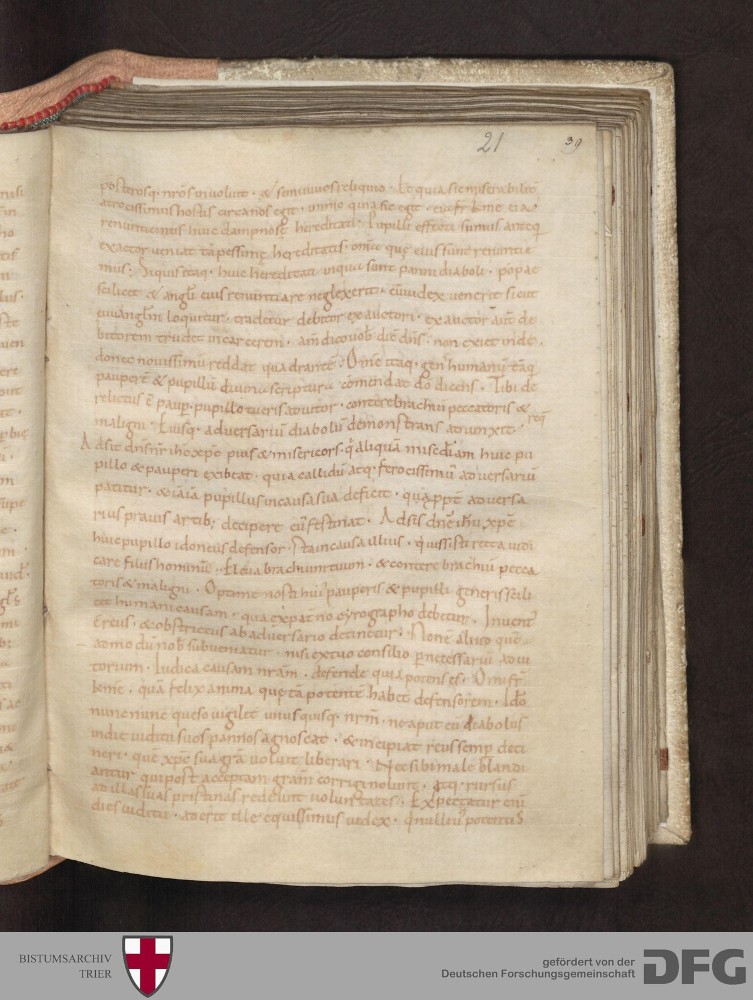 21 39
posterosq· nr̄os inuoluit · & semiuiuos reliquid · Et quia sic miserabilit̄
atrocissimus hostis circa nos egit · immo quia sic egit · eius fr̄
renuntiemus huic dampnosę hereditati · Pupilli effecti sumus anteq̄
exactor ueniat tā pessimę hereditatis · omīa quę eius sunt renuntie
mus; Siquis itaq· huic hereditati inqua sunt panni diaboli · popae
scilicet & angl̄i eius renuntiare neglexerit · cū iudex uenerit sicut
euuangl̄m loquitur · tradetur debitor exactori · exactor aut̄ de
bitorem trudet incarcerem · am̄ dico uob̄ · dic̄ dn̄s · non exiet inde ·
donec nouissimū reddat quadrantē; Om̄e itaq· gen' humanū tāq̄
pauperē & pupillū diuina scriptura comendat dō dicens · Tibi de
relictus ē paup̄ · pupillo tu eris adiutor · contere brachiū peccatoris &
maligni · Eiusq· aduersariū diabolū demonstrans adiunxit
Adsit dn̄s nr̄ ih̄c xp̄c pius & misericors · q' aliquā misc̄diam huic pu
pillo & pauperi exibeat · quia callidū atq· ferocissimū aduersariū
patitur · & iā iā pupillus in causa sua deficit · quā ppt̄ē aduersa
rius prauis artib; decipere eū festinat · Adsis dn̄e ih̄u xp̄e
huic pupillo idoneus defensor · Sta in causa illius · q'uissisti recta iudi
care filiis hominū · Eleua brachium tuum · & contere brachiū pecca
toris & maligni · Optime nosti hui' pauperis & pupilli generis scili
cet humani causam · quia ex pat̄no cyrographo debetur · Inuent'
ē reus · & obstrictus ab aduersario detinetur · Non ē aliud quē
admodū nob̄ subueniatur · nisi ex tuo consilio p̄ necessariū adiu
torium · Iudica causam nr̄am · defende quia potens es · O mi fr̄
kmē · quā felix anima quę tā potentē habet defensorem · Idō
nunc nunc queso uigilet unusquisq· nr̄m · ne aput eū diabolus
in die iudicii suos pannos agnoscat · & incipiat reus semp̄ deti
neri · quē xp̄c sua gr̄a uoluit liberari · Nec sibi male blandi
antur qui post acceptam gram̄ corrigi nolunt · atq· rursus
ad illas suas pristinas redeunt uoluntates · Expectatur eni
dies iudicii · aderit ille equissimus iudex · q'nulliu' potentis
BISTUMSARCHIV
TRIER
gefördert von der
Deutschen Forschungsgemeinschaft
DFG